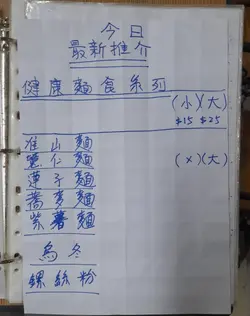 今日
最新推介
健康麵食系列
(小)(大)
$15 $25
淮山麵
薏仁麵 (x)(大)
蓮子麵
蕎麥麵
紫薯麵
烏冬
螺絲粉